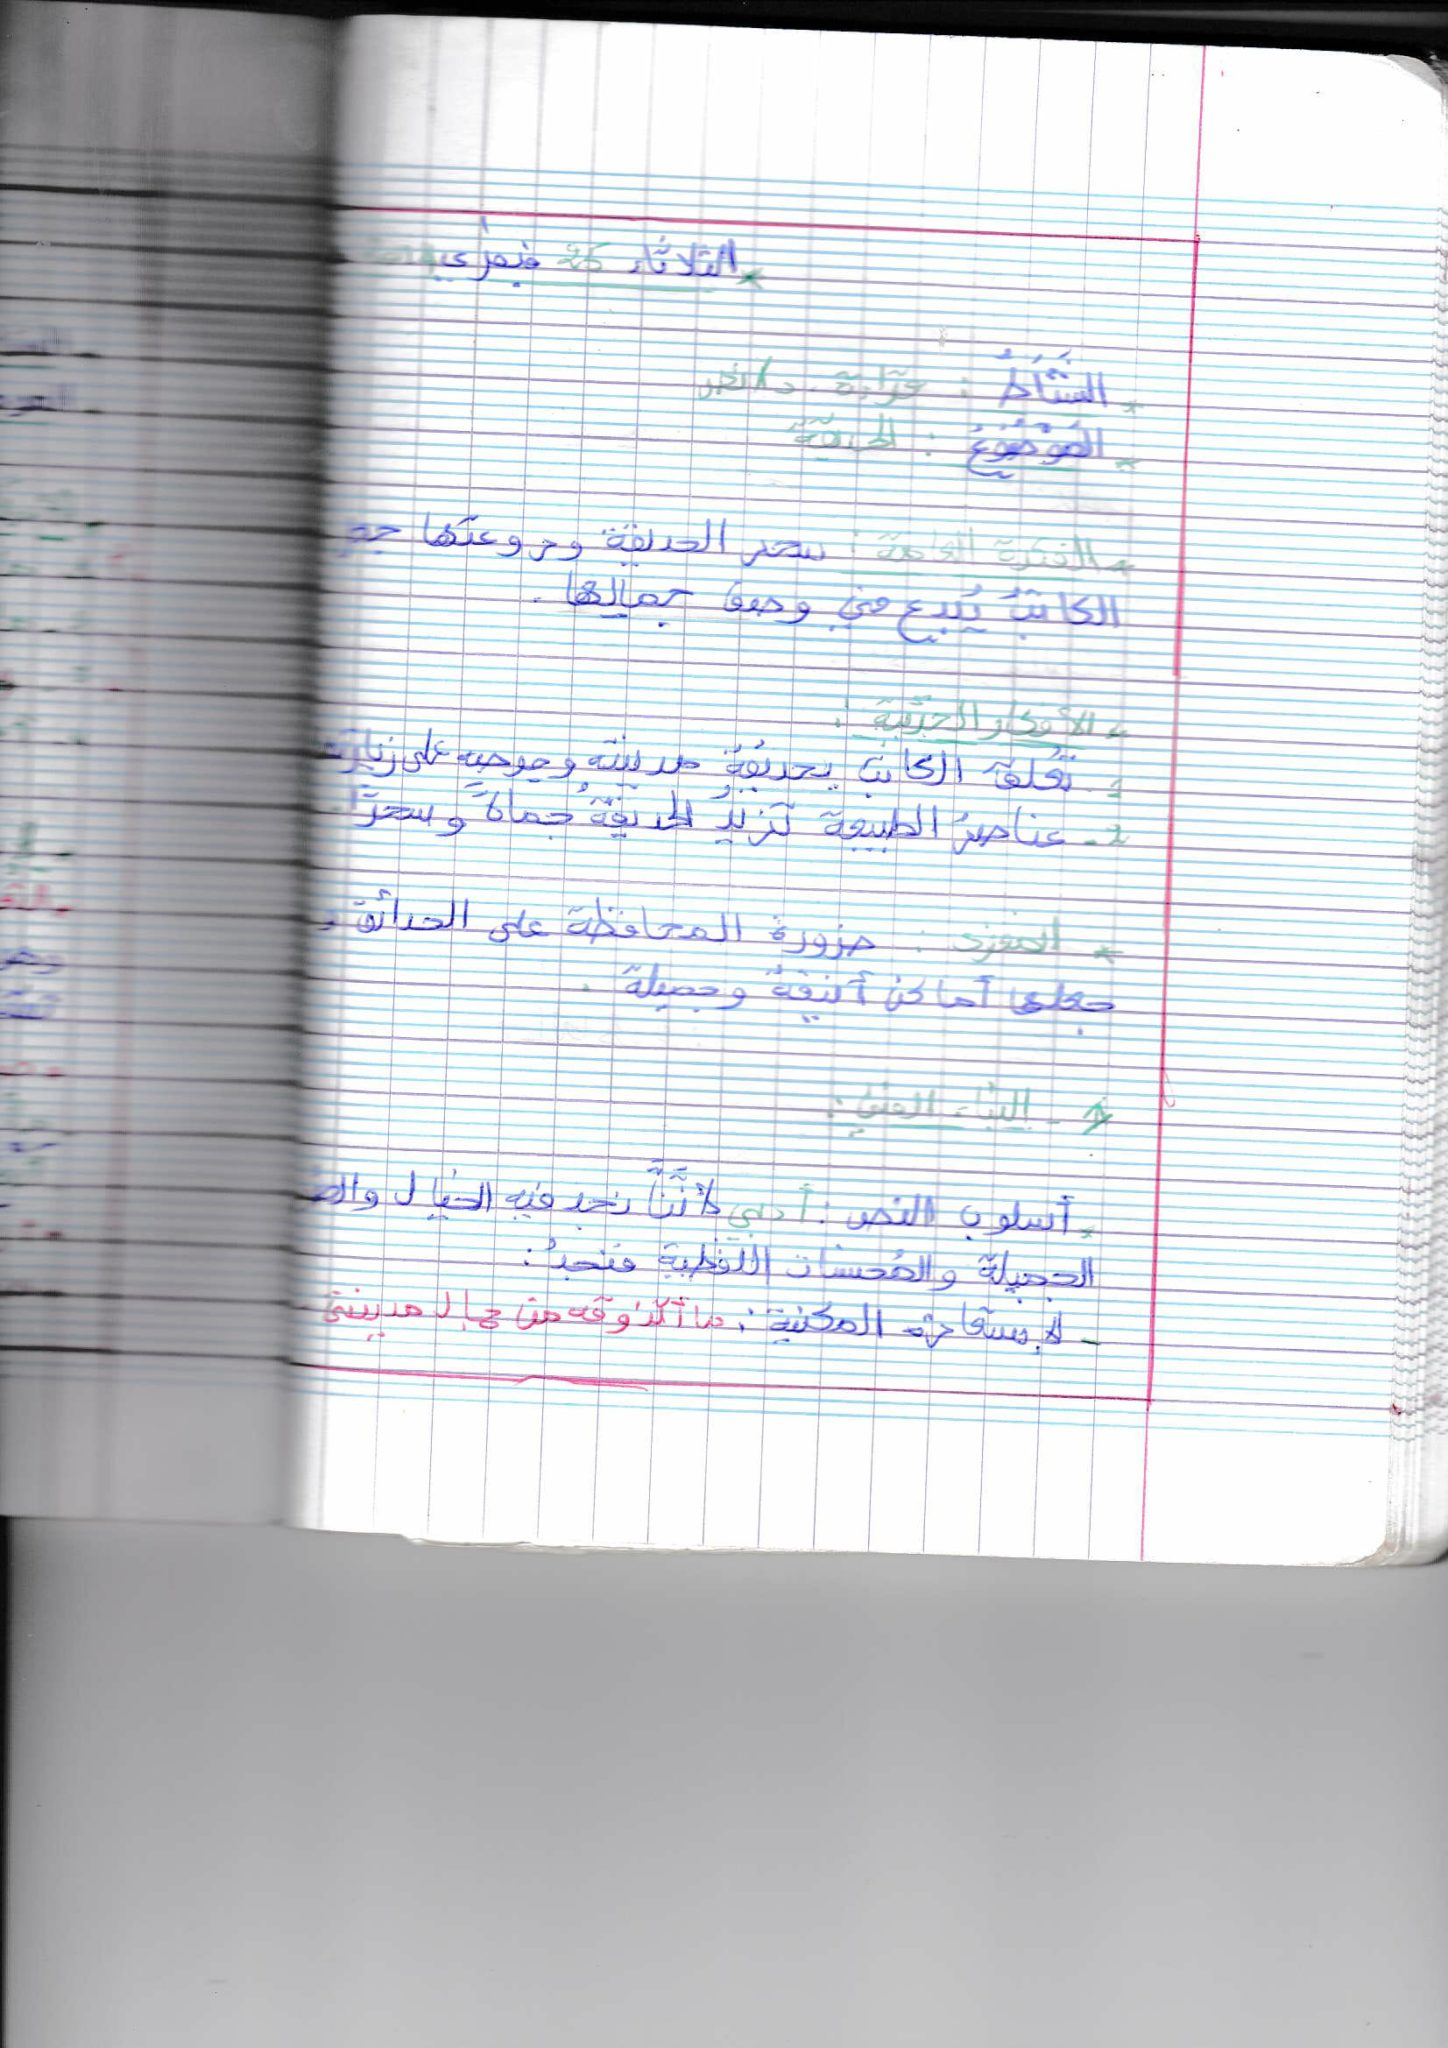 الثلاثاء 25 فيفري
النشاط : قراءة ونص
الموضوع : الحديقة
الفكرة العامة : سحر الحديقة وروعتها جعـ
الكاتب يُبدع في وصف جمالها .
الأفكار الجزئية :
1- تعلق الكاتب بحديقة مدينته وحرصه على زيارتـ
2- عناصرُ الطبيعة تزيدُ الحديقةَ جمالاً وسحرًا
المغزى : ضرورة المحافظة على الحدائق و
جعلها أماكن أنيقة وجميلة .
البناء الفني :
أسلوب النص : أدبي لأنّنا نجد فيه الخيال والصـ
الجميلة والمُحسنات اللفظية فنجدُ :
- الاستعارة المكنية : ما أتذوقه من جمال مدينتي